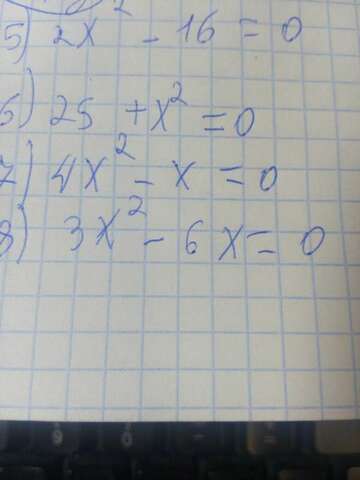 5) 2x² - 16 = 0
6) 25 + x² = 0
7) 4x² - x = 0
8) 3x² - 6x = 0